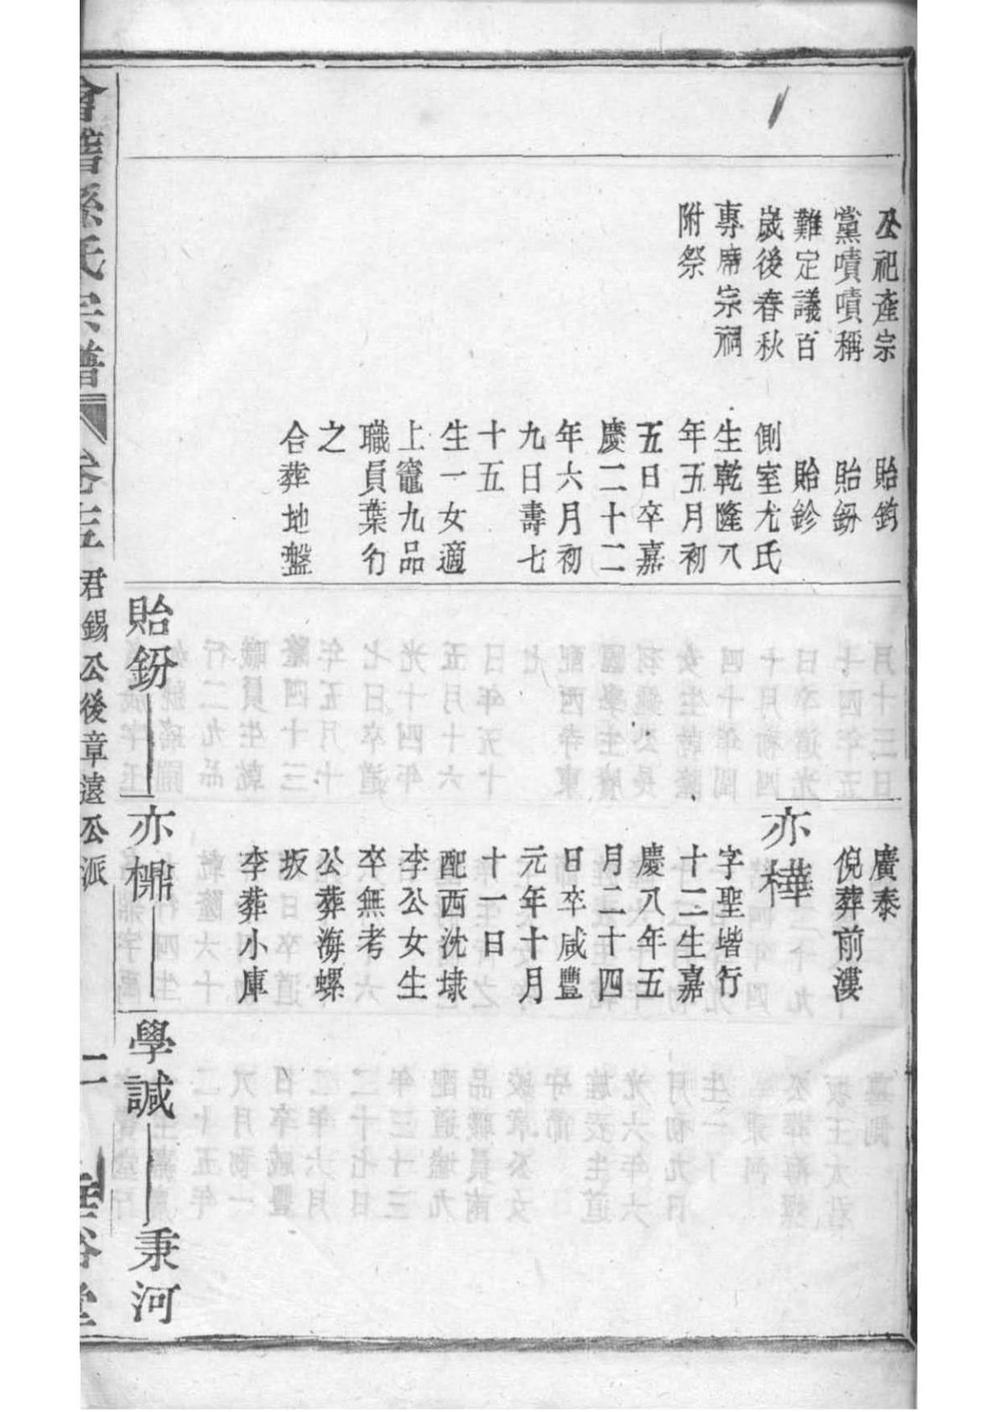 公祀產宗
黨嘖嘖稱
難定議百
歲後春秋
專席宗祠
附祭
貽鈞
貽鈖
貽鉁
側室尤氏
生乾隆八
年五月初
五日卒嘉
慶二十二
年六月初
九日壽七
十五
生一女適
上竈九品
職員葉行
之
合葬地盤
廣泰
倪葬前漊
亦樺
字聖堦行
十二生嘉
慶八年五
月二十四
日卒咸豐
元年十月
十一日
配西沈埭
李公女生
卒無考
公葬海螺
坂
李葬小庫
貽鈖
亦櫄
學諴
秉河
會稽孫氏宗譜
卷五
君錫公後章遠公派
二
垂裕堂